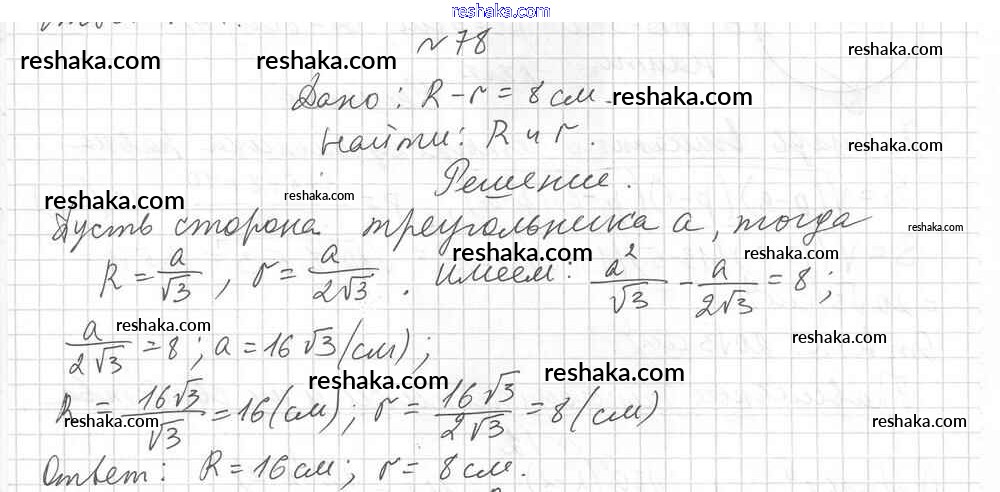 reshaka.com
№78
reshaka.com reshaka.com reshaka.com
Дано: R - r = 8 см. reshaka.com
Найти: R и r. reshaka.com
Решение.
reshaka.com reshaka.com
Пусть сторона треугольника a, тогда reshaka.com
reshaka.com reshaka.com
R = a/√3, r = a/2√3. Имеем: a²/√3 - a/2√3 = 8;
reshaka.com reshaka.com
a/2√3 = 8; a = 16√3 (см);
reshaka.com reshaka.com
R = 16√3/√3 = 16 (см); r = 16√3/2√3 = 8 (см)
reshaka.com reshaka.com
Ответ: R = 16 см; r = 8 см.